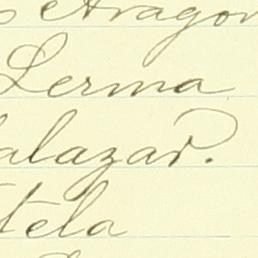 s Aragon
Lerma
alazar.
tela